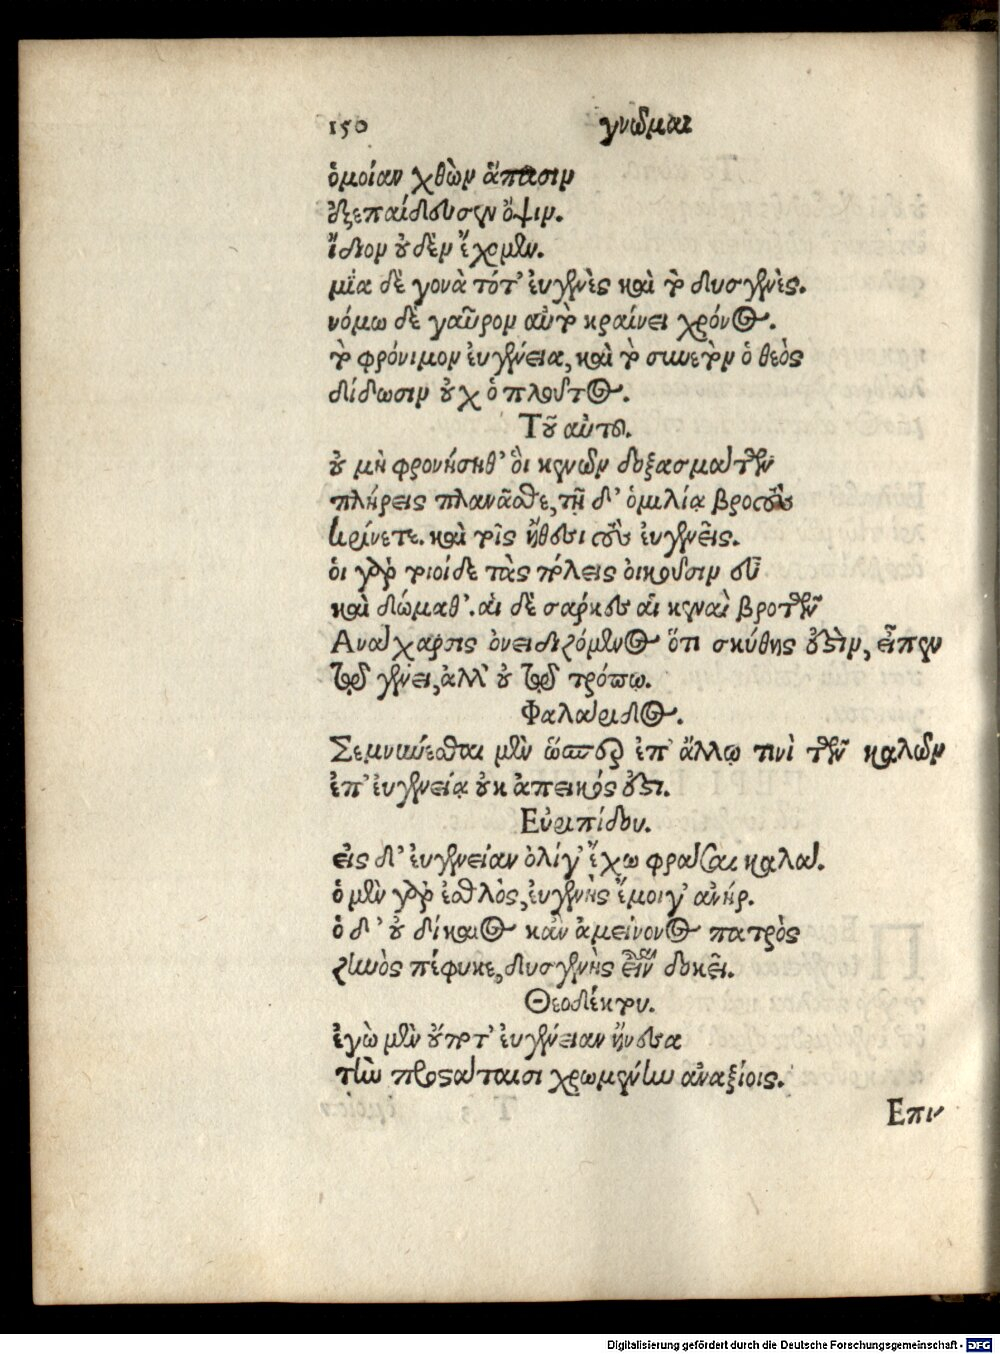 150 γνῶμαι
ὁμοίαν χθὼν ἅπασιν
ἐξεπαίδευσεν ὄψιν.
ἴδιον οὐδὲν ἔχομεν.
μία δὲ γονὰ τότ' ἐυγενὲς καὶ τὸ δυσγενὲς.
νόμω δὲ γαῦρον αὐτὸ κραίνει χρόνος.
τὸ φρόνιμον ἐυγένεια, καὶ τὸ συνετὸν ὁ θεὸς
δίδωσιν οὐχ ὁ πλοῦτος.
Τοῦ αὐτου.
οὐ μὴ φρονήσηθ' ὃι κενῶν δοξασμάτων
πλήρεις πλανᾶσθε, τῇ δ' ὁμιλίᾳ βροτοὺς
κρίνετε. καὶ τοῖς ἤθεσι τοὺς ἐυγενεῖς.
ὁι γὰρ τοιοίδε τὰς πόλεις ὀικοῦσιν εὖ
καὶ δώμαθ'. ἁι δὲ σάρκες ἁι κεναὶ βροτῶν
Ανάχαρσις ὀνειδιζόμενος ὅτι σκύθης ἐστὶν, εἶπεν
τῷ γένει, ἀλλ' οὐ τῷ τρόπῳ.
Φαλάριδος.
Σεμνύνεσθαι μὲν ὥσπερ ἐπ' ἄλλῳ τινὶ τῶν καλῶν
ἐπ' ἐυγενείᾳ οὐκ ἀπεικός ἐστι.
Εὐριπίδου.
εἰς δ' ἐυγενείαν ὀλίγ' ἔχω φράσαι καλά.
ὁ μὲν γὰρ ἐσθλὸς, ἐυγενὴς ἔμοιγ' ἀνήρ.
ὁ δ' οὐ δίκαιος κἂν ἀμείνονος πατρὸς
ζηνὸς πέφυκε, δυσγενὴς εἶναι δοκεῖ.
Θεοδέκτου.
ἐγὼ μὲν οὔποτ' ἐυγένειαν ἤνεσα
τὴν προστάταισι χρωμένην ἀναξίοις.
Επι
Digitalisierung gefördert durch die Deutsche Forschungsgemeinschaft - DFG